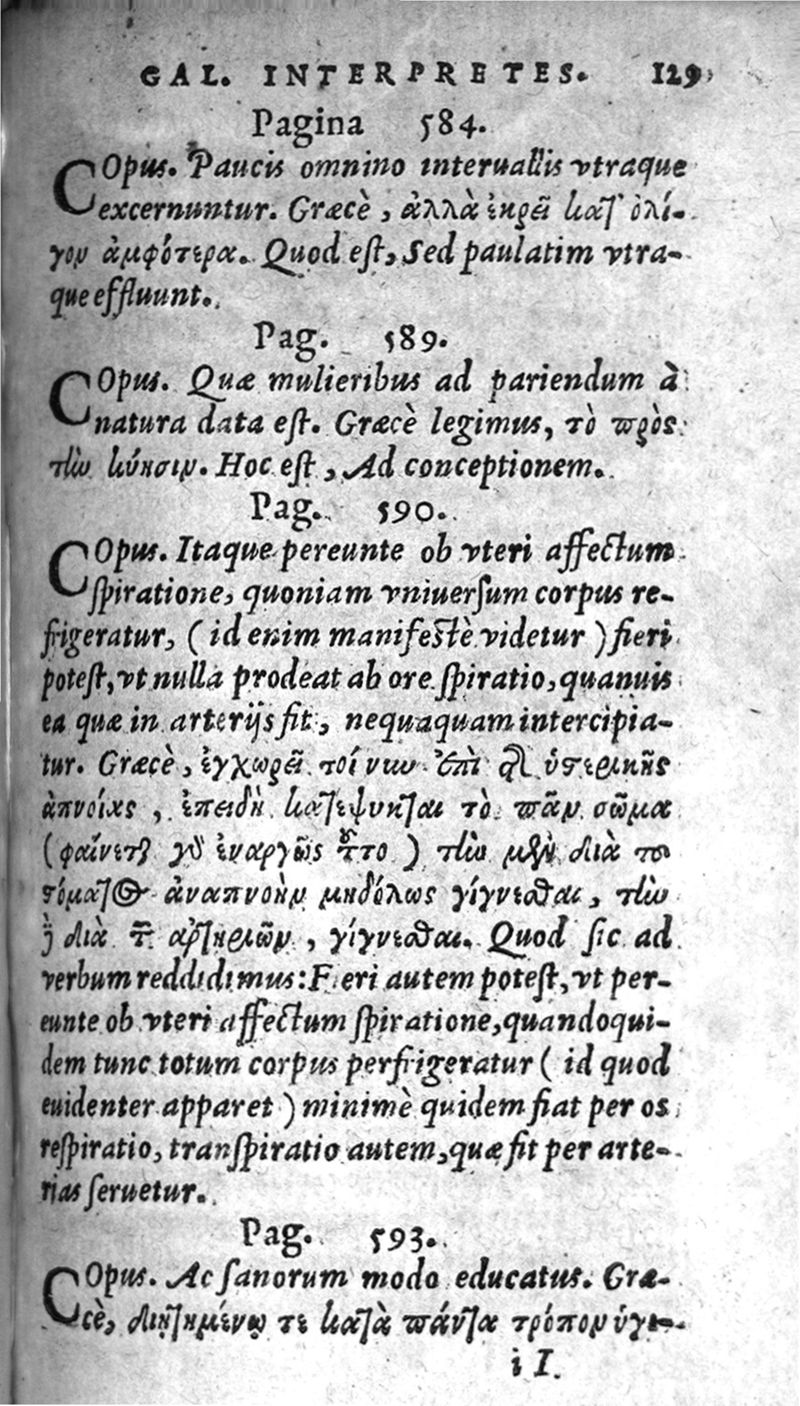 GAL. INTERPRETES. 129
Pagina 584.
COpus. Paucis omnino interuallis vtraque
excernuntur. Græcè, ἀλλὰ ἐκρεῖ κατ' ὀλί-
γον ἀμφότερα. Quod est, Sed paulatim vtra-
que effluunt.
Pag. 589.
COpus. Quæ mulieribus ad pariendum à
natura data est. Græcè legimus, τὸ πρὸς
τὴν κύησιν. Hoc est, Ad conceptionem.
Pag. 590.
COpus. Itaque pereunte ob vteri affectum
spiratione, quoniam vniuersum corpus re-
frigeratur, (id enim manifestè videtur) fieri
potest, vt nulla prodeat ab ore spiratio, quanuis
ea quæ in arterijs fit, nequaquam intercipia-
tur. Græcè, ἐγχωρεῖ τοίνυν ἐπὶ τῆς ὑστερικῆς
ἀπνοίας, ἐπειδὴ κατεψυκται τὸ πᾶν σῶμα
(φαίνεται γὰρ ἐναργῶς τοῦτο) τὴν μὲν διὰ τοῦ
στόματος ἀναπνοὴν μηδόλως γίγνεσθαι, τὴν
δὲ διὰ τῶν ἀρτηριῶν, γίγνεσθαι. Quod sic ad
verbum reddidimus: Fieri autem potest, vt per-
eunte ob vteri affectum spiratione, quandoqui-
dem tunc totum corpus perfrigeratur (id quod
euidenter apparet) minimè quidem fiat per os
respiratio, transpiratio autem, quæ fit per arte-
rias seruetur.
Pag. 593.
COpus. Ac sanorum modo educatus. Græ-
cè, διῃτημένῳ τε κατὰ πάντα τρόπον ὑγι-
i I.